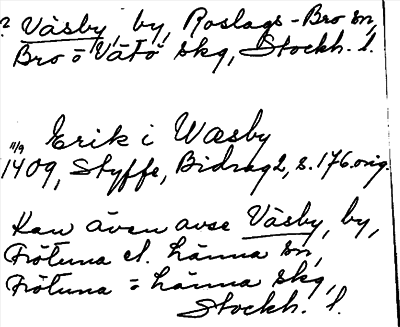 ? Väsby, by, Roslags-Bro sn,
Bro o Vätö skg, Stockh. l.
Erik i Wæsby
11/9
1409, Styffe, Bidrag 2, s. 176. orig.
Kan även avse Väsby, by,
Frötuna el. Länna sn,
Frötuna o Länna skg,
Stockh. l.